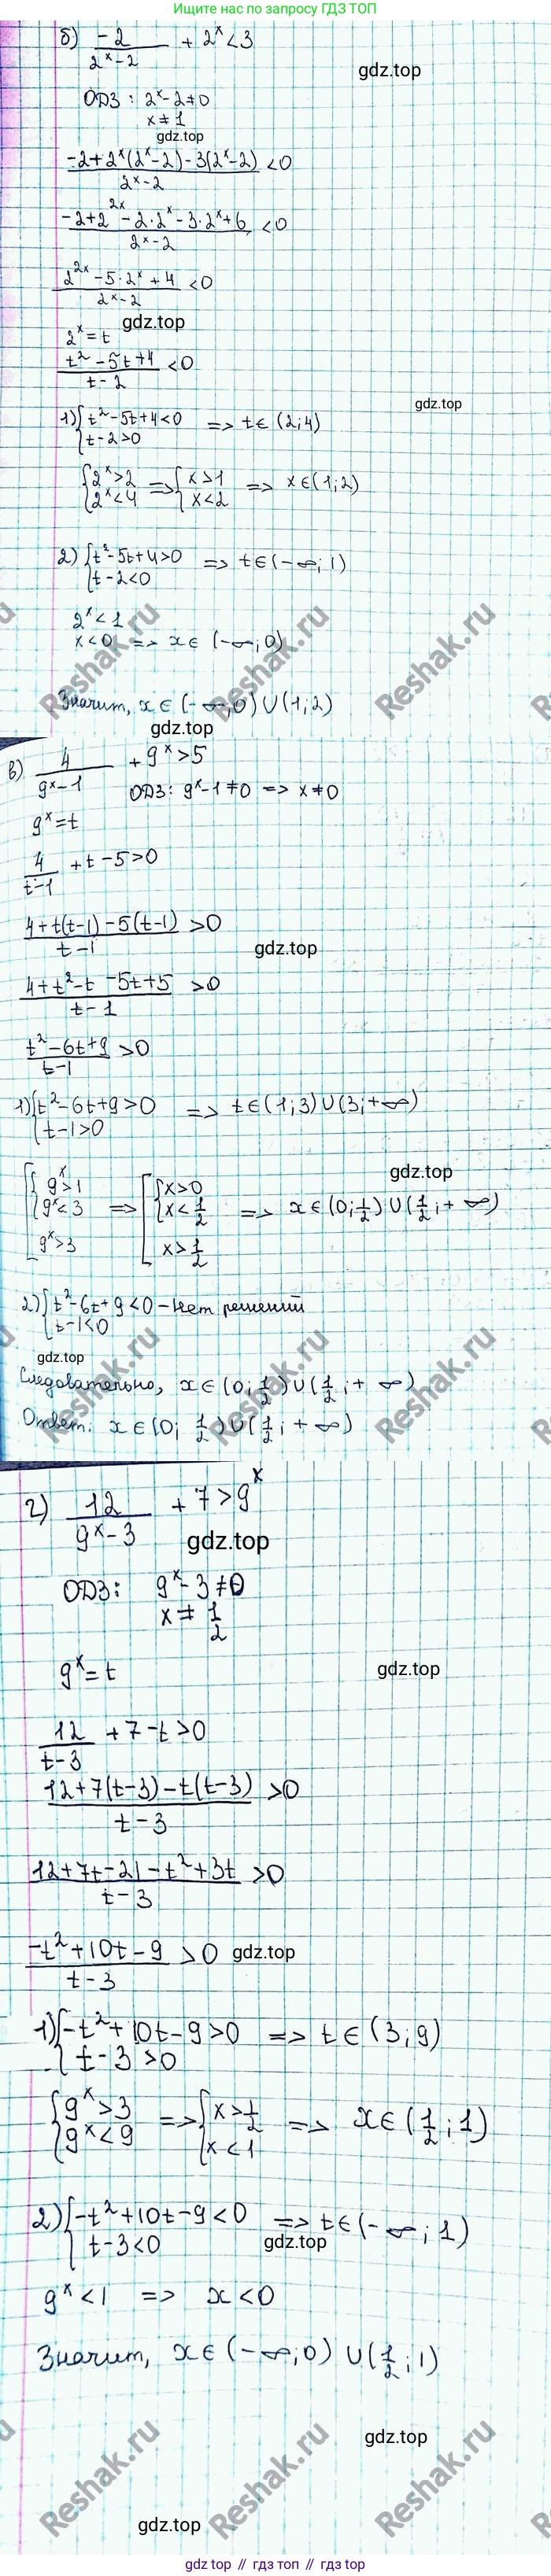 Ищите нас по запросу ГДЗ ТОП
б) -2/(2^x-2) + 2^x<3
gdz.top
ОДЗ : 2^x-2≠0
x≠1
gdz.top
(-2+2^x(2^x-2)-3(2^x-2))/(2^x-2) <0
(-2+2^2x-2·2^x-3·2^x+6)/(2^x-2) <0
(2^2x-5·2^x+4)/(2^x-2) <0
2^x=t
gdz.top
(t²-5t+4)/(t-2) <0
gdz.top
1) { t²-5t+4<0 => t∈(2;4)
t-2>0
{ 2^x>2 => { x>1 => x∈(1;2)
2^x<4 x<2
2) { t²-5t+4>0 => t∈(-∞;1)
t-2<0
2^x<1
x<0 => x∈(-∞;0)
Reshak.ru Reshak.ru
Значит, x∈(-∞;0)∪(1;2)
gdz.top
в) 4/(9^x-1) + 9^x>5
ОДЗ: 9^x-1≠0 => x≠0
9^x=t
4/(t-1) +t-5>0
(4+t(t-1)-5(t-1))/(t-1) >0
gdz.top
(4+t²-t-5t+5)/(t-1) >0
(t²-6t+9)/(t-1) >0
1) { t²-6t+9>0 => t∈(1;3)∪(3;+∞)
t-1>0
gdz.top
[ { 9^x>1 => [ { x>0 => x∈(0;1/2)∪(1/2;+∞)
9^x<3 x<1/2
9^x>3 x>1/2
2) { t²-6t+9<0 – нет решений
t-1<0
gdz.top
Reshak.ru Reshak.ru
Следовательно, x∈(0;1/2)∪(1/2;+∞)
Ответ: x∈(0;1/2)∪(1/2;+∞)
г) 12/(9^x-3) + 7>9^x
gdz.top
ОДЗ: 9^x-3≠0
x≠1/2
9^x=t
gdz.top
12/(t-3) +7-t>0
(12+7(t-3)-t(t-3))/(t-3) >0
(12+7t-21-t²+3t)/(t-3) >0
(-t²+10t-9)/(t-3) >0
gdz.top
1) { -t²+10t-9>0 => t∈(3;9)
t-3>0
{ 9^x>3 => { x>1/2 => x∈(1/2;1)
9^x<9 x<1
2) { -t²+10t-9<0 => t∈(-∞;1)
t-3<0
gdz.top
9^x<1 => x<0
Значит, x∈(-∞;0)∪(1/2;1)
gdz.top
Reshak.ru Reshak.ru Reshak.ru
gdz.top
gdz top // гдз топ // gdz top